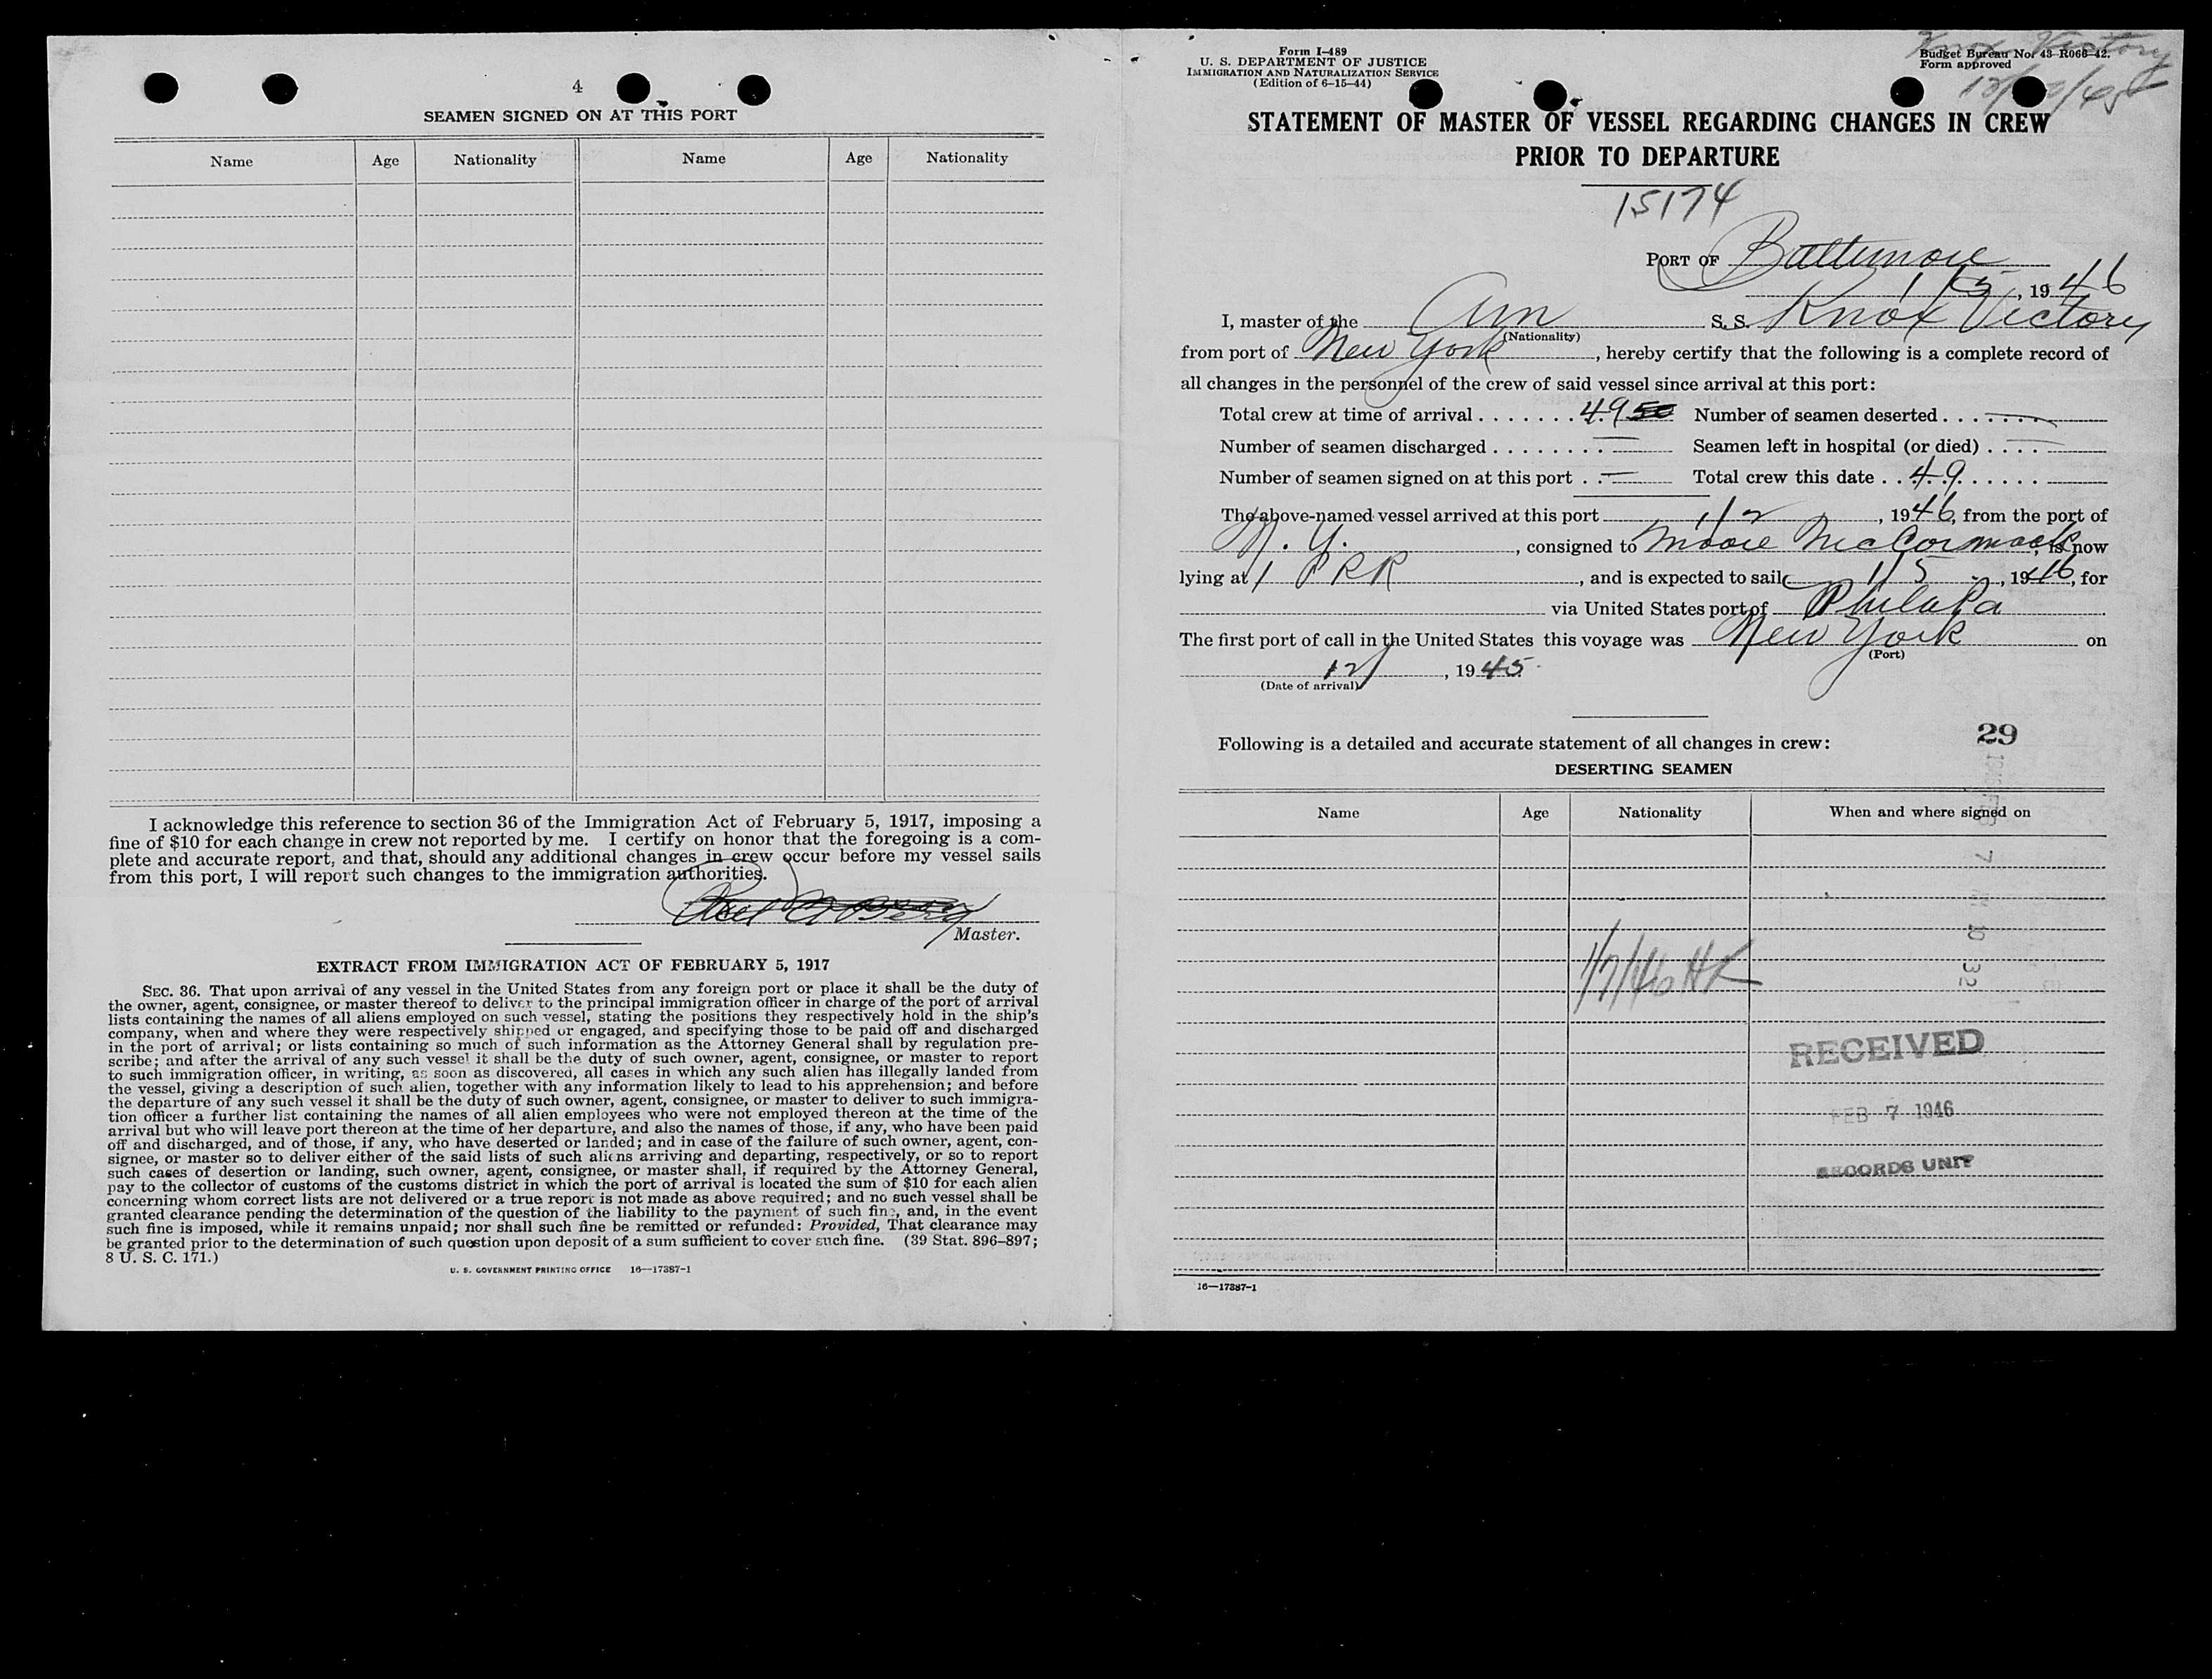 4
SEAMEN SIGNED ON AT THIS PORT
Name Age Nationality Name Age Nationality
I acknowledge this reference to section 36 of the Immigration Act of February 5, 1917, imposing a
fine of $10 for each change in crew not reported by me. I certify on honor that the foregoing is a com-
plete and accurate report, and that, should any additional changes in crew occur before my vessel sails
from this port, I will report such changes to the immigration authorities.
Master.
EXTRACT FROM IMMIGRATION ACT OF FEBRUARY 5, 1917
SEC. 36. That upon arrival of any vessel in the United States from any foreign port or place it shall be the duty of
the owner, agent, consignee, or master thereof to deliver to the principal immigration officer in charge of the port of arrival
lists containing the names of all aliens employed on such vessel, stating the positions they respectively hold in the ship's
company, when and where they were respectively shipped or engaged, and specifying those to be paid off and discharged
in the port of arrival; or lists containing so much of such information as the Attorney General shall by regulation pre-
scribe; and after the arrival of any such vessel it shall be the duty of such owner, agent, consignee, or master to report
to such immigration officer, in writing, as soon as discovered, all cases in which any such alien has illegally landed from
the vessel, giving a description of such alien, together with any information likely to lead to his apprehension; and before
the departure of any such vessel it shall be the duty of such owner, agent, consignee, or master to deliver to such immigra-
tion officer a further list containing the names of all alien employees who were not employed thereon at the time of the
arrival but who will leave port thereon at the time of her departure, and also the names of those, if any, who have been paid
off and discharged, and of those, if any, who have deserted or landed; and in case of the failure of such owner, agent, con-
signee, or master so to deliver either of the said lists of such aliens arriving and departing, respectively, or so to report
such cases of desertion or landing, such owner, agent, consignee, or master shall, if required by the Attorney General,
pay to the collector of customs of the customs district in which the port of arrival is located the sum of $10 for each alien
concerning whom correct lists are not delivered or a true report is not made as above required; and no such vessel shall be
granted clearance pending the determination of the question of the liability to the payment of such fine, and, in the event
such fine is imposed, while it remains unpaid; nor shall such fine be remitted or refunded: Provided, That clearance may
be granted prior to the determination of such question upon deposit of a sum sufficient to cover such fine. (39 Stat. 896-897;
8 U. S. C. 171.)
U. S. GOVERNMENT PRINTING OFFICE 16—17387-1
Form I-489
U. S. DEPARTMENT OF JUSTICE
IMMIGRATION AND NATURALIZATION SERVICE
(Edition of 6-15-44)
Knox Victory
Budget Bureau No. 43-R066-42.
Form approved
STATEMENT OF MASTER OF VESSEL REGARDING CHANGES IN CREW
PRIOR TO DEPARTURE
15174
PORT OF Baltimore
1/5, 1946
I, master of the Am S. S. Knox Victory
(Nationality)
from port of New York, hereby certify that the following is a complete record of
all changes in the personnel of the crew of said vessel since arrival at this port:
Total crew at time of arrival 49 50 Number of seamen deserted —
Number of seamen discharged — Seamen left in hospital (or died) —
Number of seamen signed on at this port — Total crew this date 49
The above-named vessel arrived at this port 1/2, 1946, from the port of
N. Y., consigned to Moore McCormack, is now
lying at 1 PRR, and is expected to sail 1/5, 1946, for
via United States port of Philada
The first port of call in the United States this voyage was New York on
(Port)
12/, 1945
(Date of arrival)
Following is a detailed and accurate statement of all changes in crew: 29
DESERTING SEAMEN
Name Age Nationality When and where signed on
7
10 32
1/7/46 HK
RECEIVED
FEB 7 1946
RECORDS UNIT
16—17387-1